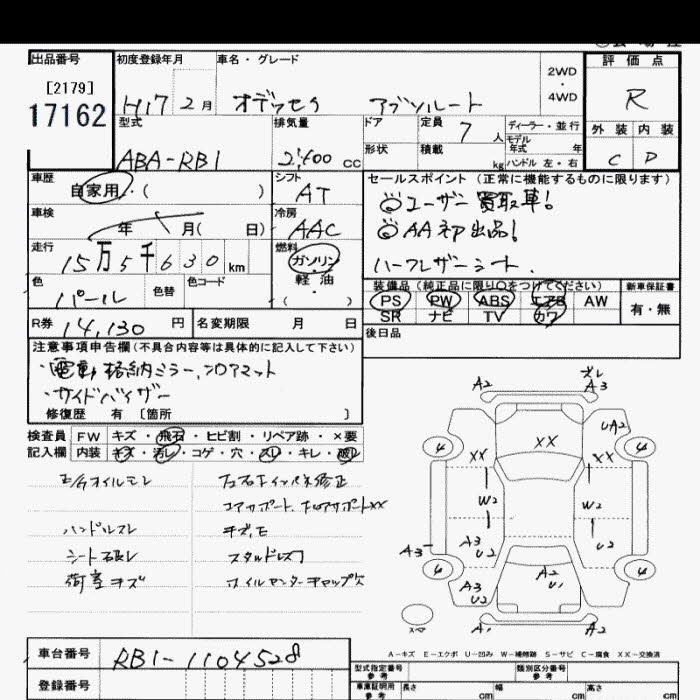 出品番号
[2179]
17162
初度登録年月
H17 2月
車名・グレード
オデッセイ アブソルート
2WD
・
4WD
評価点
R
外装 内装
C D
型式
ABA-RB1
排気量
2400 cc
ドア
形状
定員 7 人
積載 kg
ディーラー・並行
モデル年式 年
ハンドル 左・右
車歴
自家用・( )
シフト
AT
車検
年 月( 日)
冷房
AAC
走行
15万5千630 km
燃料
ガソリン
軽油
・
( )
色
パール
色替
色コード
R券 14,130 円
名変期限 月 日
セールスポイント(正常に機能するものに限ります)
◎ユーザー買取車!
◎AA初出品!
ハーフレザーシート.
装備品(純正品に限り○をつけてください)
PS PW ABS エアB AW
SR ナビ TV カワ
新車保証書
有・無
後日品
注意事項申告欄(不具合内容等は具体的に記入して下さい)
・電動格納ミラー,フロアマット
・サイドバイザー
修復歴 有 [箇所 ]
検査員記入欄
FW キズ・飛石・ヒビ割・リペア跡・×要
内装 キズ・汚レ・コゲ・穴・スレ・キレ・破レ
E/Gオイルモレ
ハンドルスレ
シート破レ
荷室キズ
左右インパネ修正
コアサポート、
XX
キズ、
スタッドレス
ホイルセンターキャップ欠
A2
A3
UA2
4
4
XX
XX
XX
W2
W2
A3
A3
U2
U2
4
4
A3
U2
A2
U1
A1
A2
スペア
A-キズ E-エクボ U-凹み W-補修跡 S-サビ C-腐食 XX-交換済
車台番号
RB1-1104528
登録番号
型式指定番号
参考
類別区分番号
参考
車庫証明用
参考
長さ cm
幅 cm
高さ cm